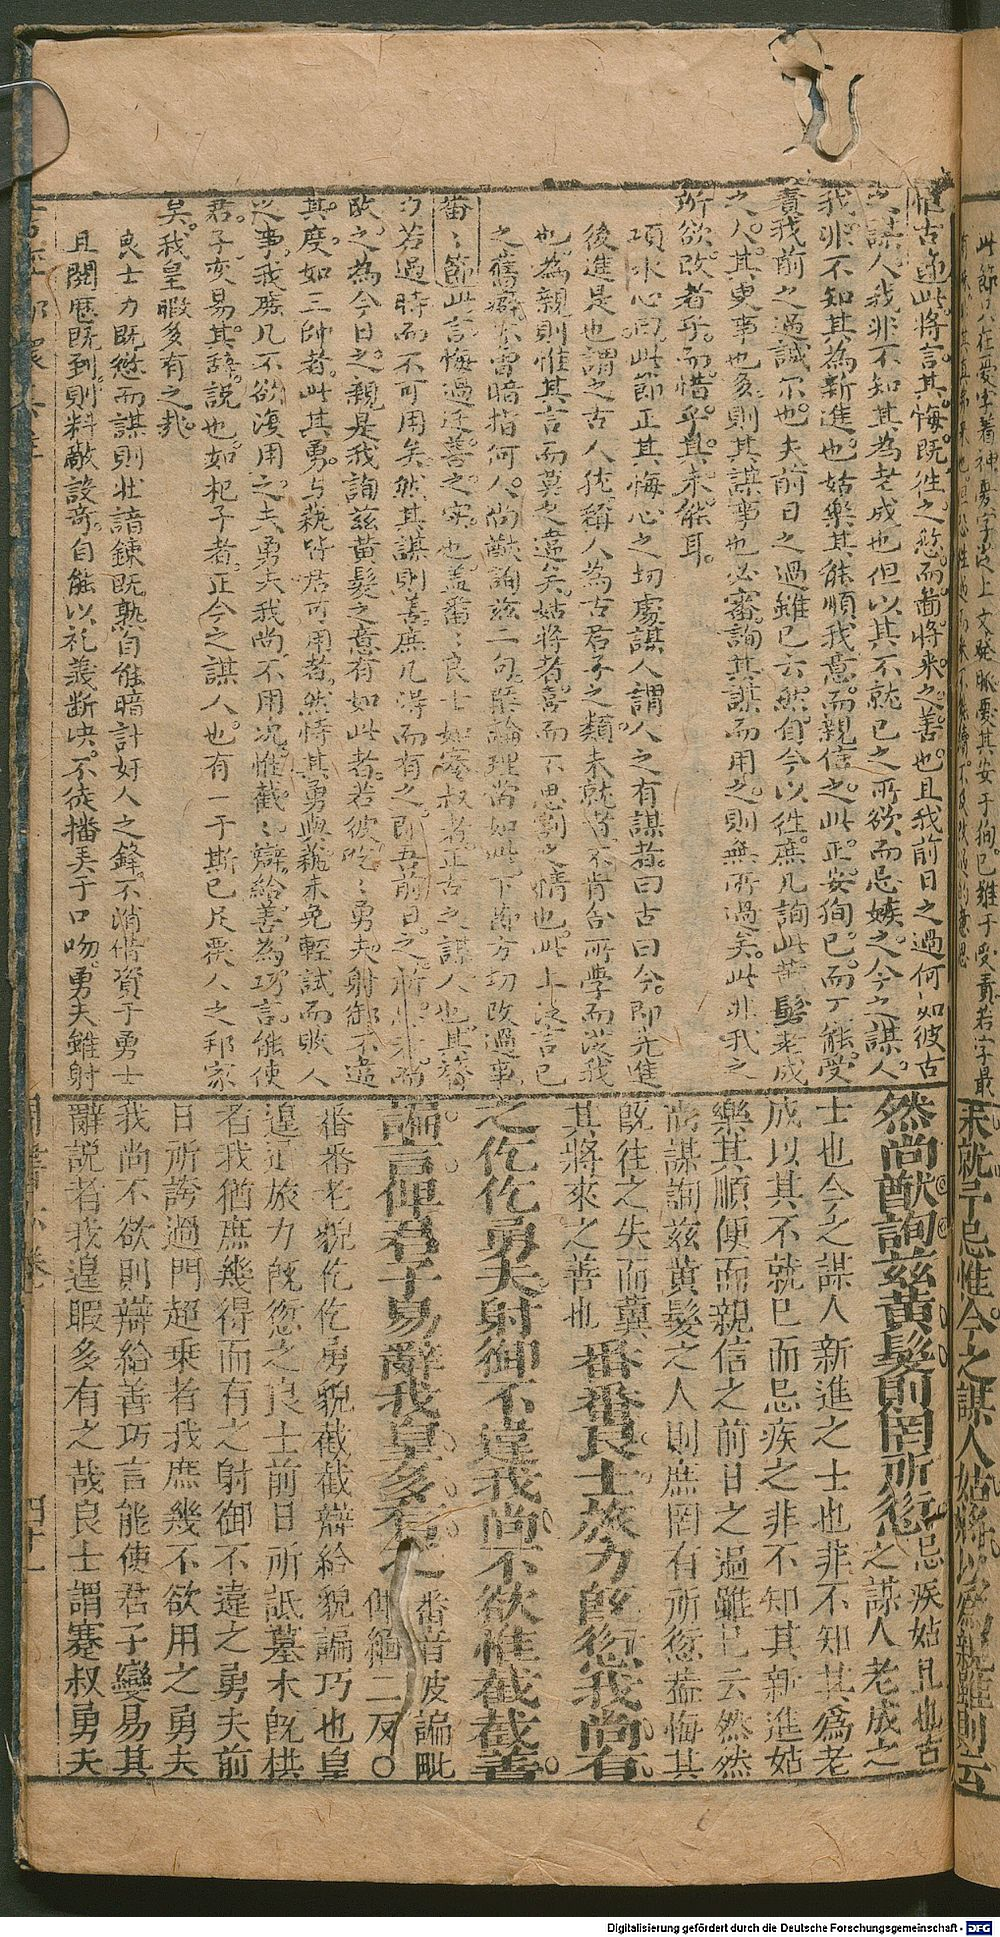 此節只在受字着神
惟古遠此將言其悔既徃之愆而啚將来之善也且我前日之過何如彼古
之謀人我非不知其為老成也但以其不就已之所欲而忌嫉之今之謀人
我非不知其為新進也姑樂其能順我意而親信之此正安徇已而不能受
責我前之過誠尓也夫前日之過雖已云然自今以徃庶几詢此黄髮老成
之人其更事也多則其謀事也必審詢其謀而用之則無所過矣此非我之
所欲改者乎而惜乎其未能耳
項水心曰此節正其悔心之切處謀人謂人之有謀者曰古曰今即先進
後進是也謂之古人猶稱人為古君子之類未就者不肯舍所學而從我
也為親則惟其言而莫之違矣姑將者喜而不思割之情也此上泛言已
之舊癖不曾暗指何人尚猷詢兹二句槩論理當如此下節方切改過事
番〻節此言悔過迁善之实也盖番〻良士如蹇叔者正古之謀人也其膂
力若過時而不可用矣然其謀則善庶几得而有之即吾前日之所忌
改之為今日之親是我詢兹黄髮之意有如此者若彼仡〻勇夫射御不違
其度如三帥者此其勇与藝皆若可用者然恃其勇與藝未免輕試而敗人
之事我庶几不欲復用之夫勇夫我尚不用况惟截〻辯給善為巧言能使
君子变易其辞說也如杞子者正今之謀人也有一于斯已足喪人之邦家
矣我皇暇多有之哉
良士力既愆而謀則壯諳鍊既熟自能暗計奸人之鋒不消借資于勇士
且閱歷既到則料敵設奇自能以礼義断决不徒播美于口吻勇夫雖射
未就予忌惟今之謀人姑將以為親雖則云
然尚猷詢兹黄髮則罔所愆
忌疾姑且也古
之謀人老成之
士也今之謀人新進之士也非不知其爲老
成以其不就已而忌疾之非不知其新進姑
樂其順便而親信之前日之過雖已云然然
尚謀詢兹黄髮之人則庶罔有所愆葢悔其
旣往之失而冀
其將來之善也
番番良士旅力旣愆我尚有
之仡仡勇夫射御不違我尚不欲惟截截善
諞言俾君子易辭我皇多有之
番音波諞毗
緬二反
番番老貌仡仡勇貌截截辯給貌諞巧也皇
遑通旅力旣愆之良士前日所詆墓木旣拱
者我猶庶幾得而有之射御不違之勇夫前
日所誇過門超乗者我庶幾不欲用之勇夫
我尚不欲則辯給善巧言能使君子變易其
辭説者我遑暇多有之哉良士謂蹇叔勇夫
四十一
Digitalisierung gefördert durch die Deutsche Forschungsgemeinschaft - DFG